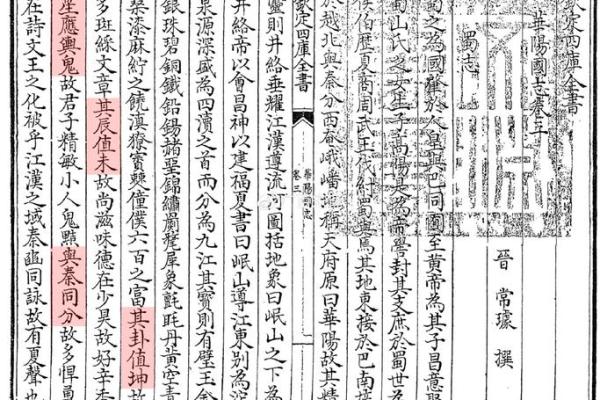 欽定四庫全書
華陽國志卷三
晉 常璩 撰
蜀志
蜀之為國肇於人皇與巴同囿至黃帝為其子昌意娶
蜀山氏之女生子高陽是為帝嚳封其支庶於蜀世為
侯伯歷夏商周武王伐紂蜀與焉其地東接於巴南接
於越北與秦分西奄峨嶓地稱天府原曰華陽故其精
欽定四庫全書
華陽國志
卷三
靈則井絡垂耀江漢遵流河圖括地象曰岷山之下為
井絡帝以會昌神以建福夏書曰岷山導江東別為沱
泉源深盛為四瀆之首而分為九江其寶則有璧玉金
銀珠碧銅鐵鉛錫赭堊錦繡罽氂犀象氈毦丹黃空青
桑漆麻紵之饒滇獠賨僰僮僕六百之富其卦值坤故
多班綵文章其辰值未故尚滋味德在少昊故好辛香
星應輿鬼故君子精敏小人鬼黠與秦同分故多悍勇
在詩文王之化被乎江漢之域秦豳同詠故有夏聲也